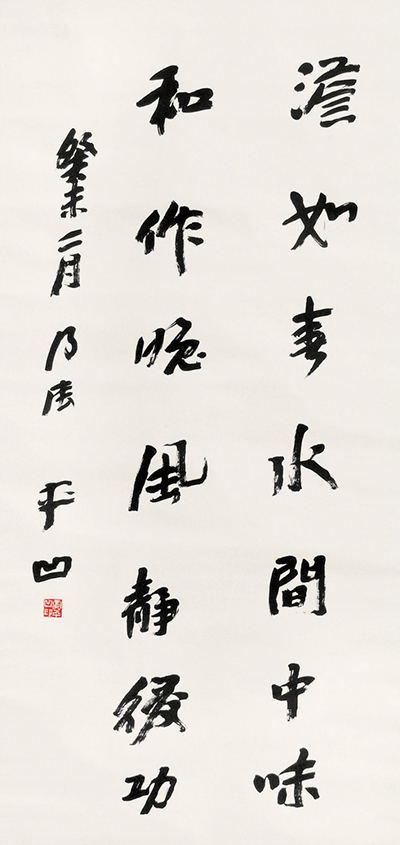 澹如春水間中味
和作晚風靜後功
癸未二月 平凹